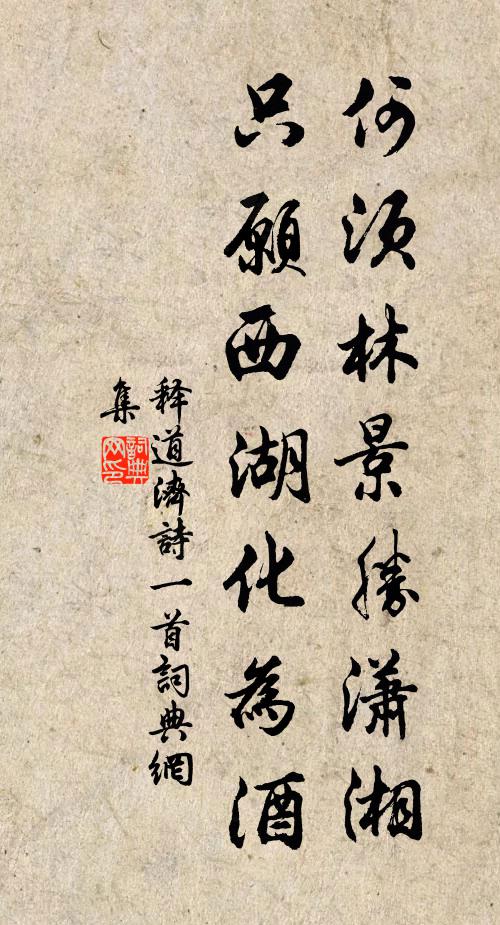 何須林景勝瀟湘
只願西湖化為酒
释道濟詩一首詞典網
集
詞典
网印